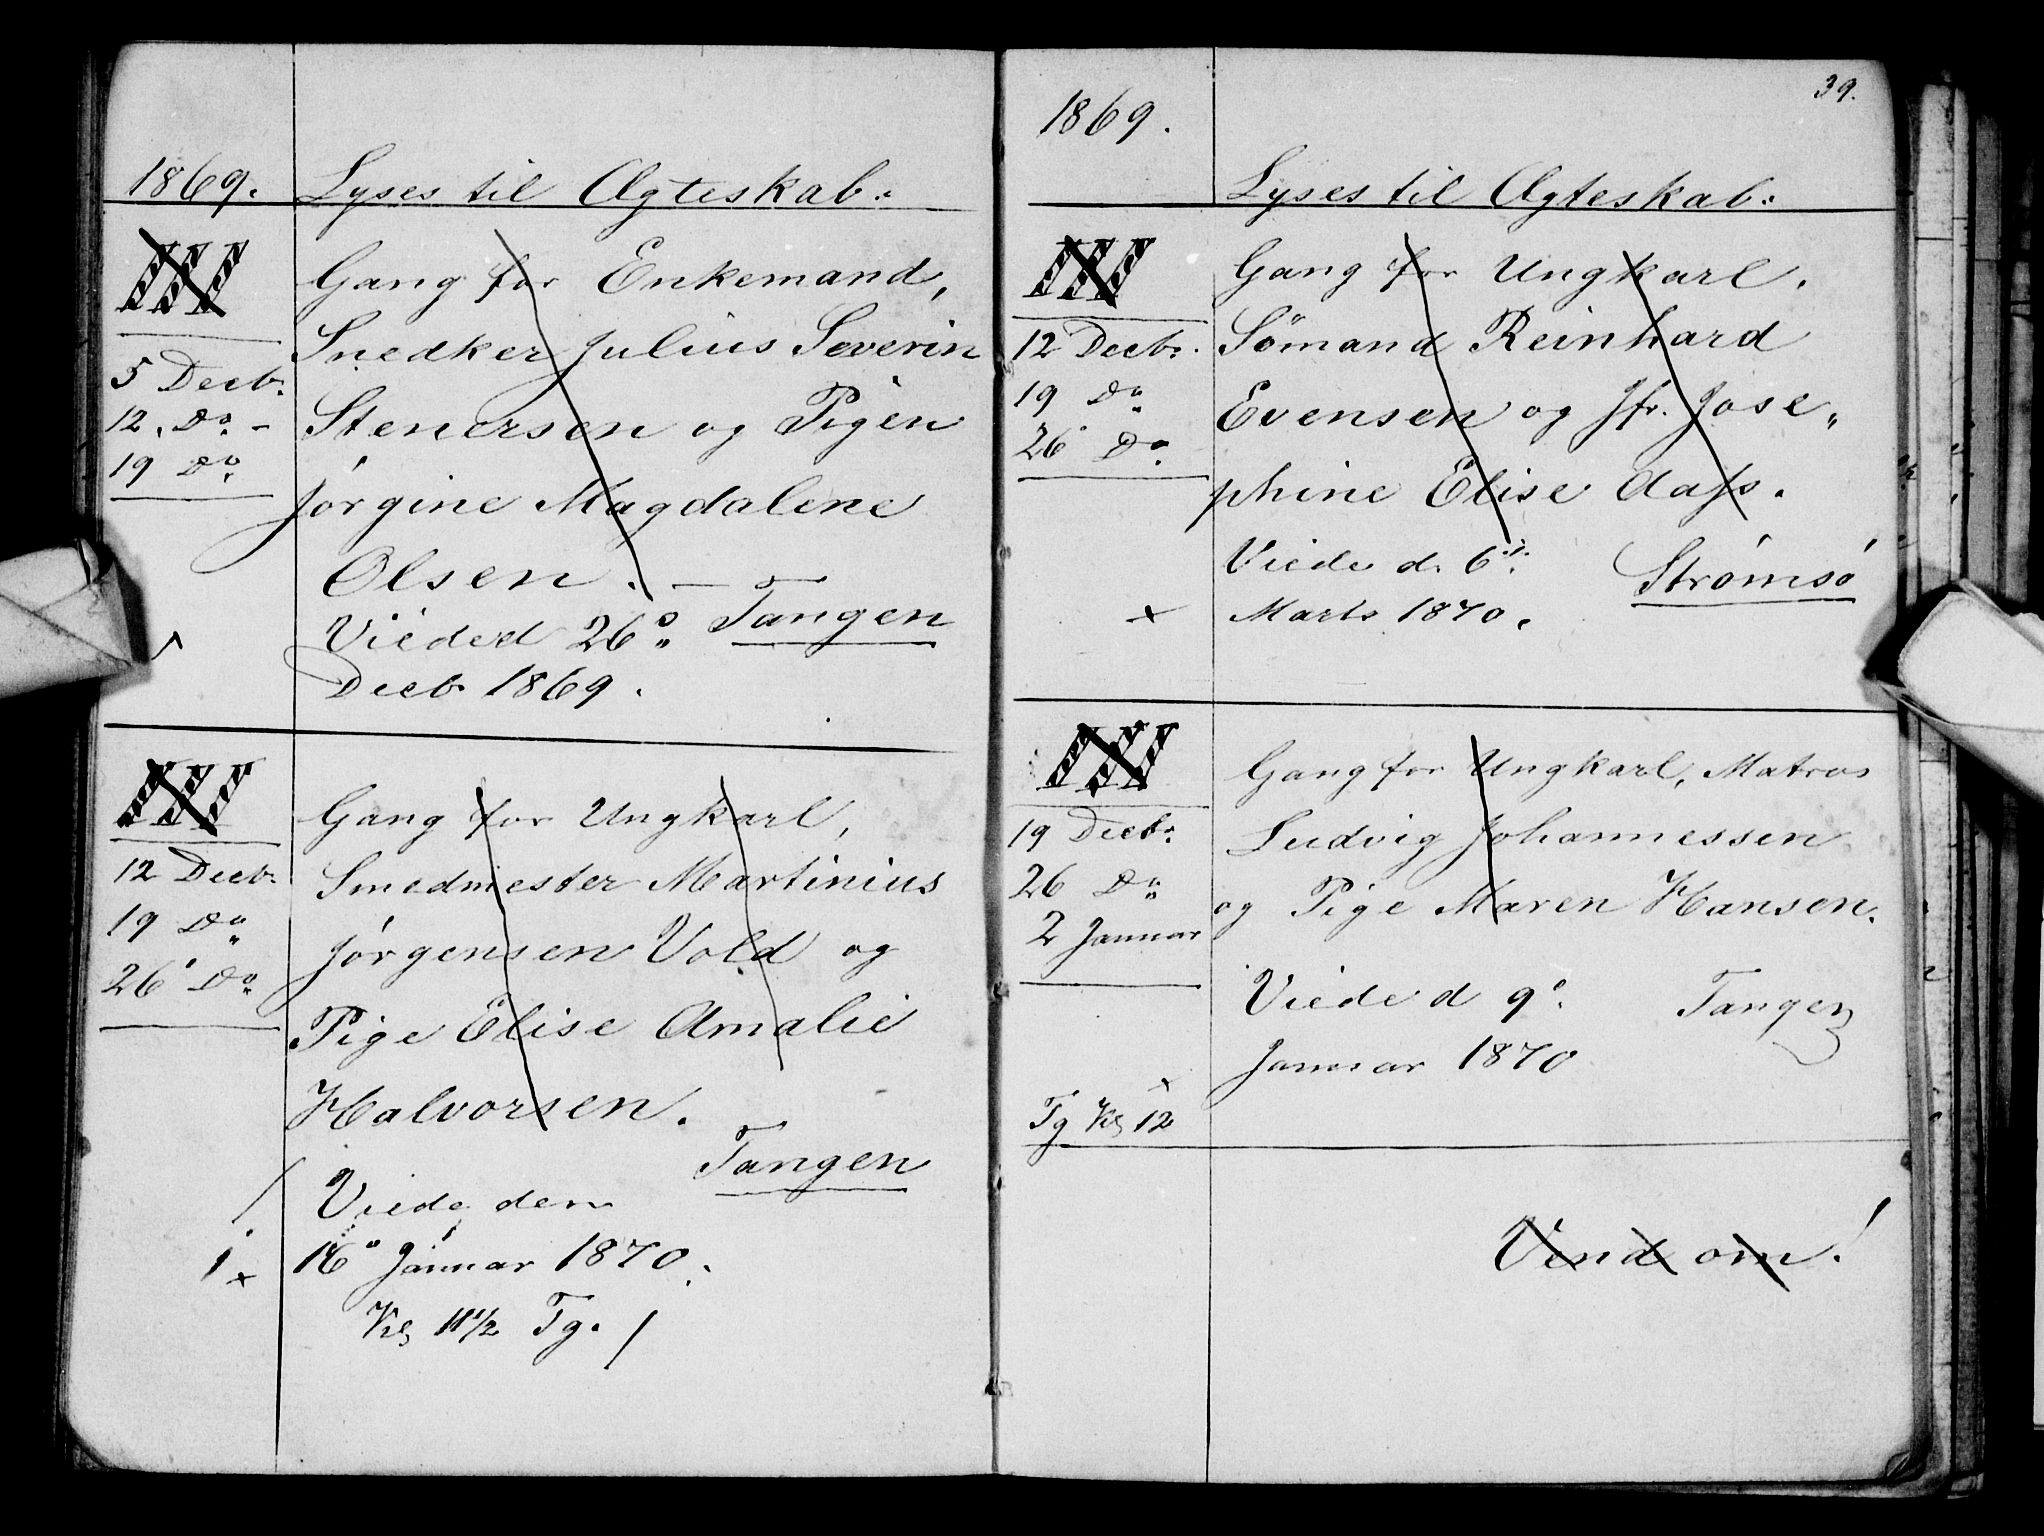 1869. Lyses til Ægteskab.
III
Gang for Enkemand,
Snedker Julius Severin
5 Decb.
12. Do. - Stenersen og Pigen
19 Do.
Jørgine Magdalene
Olsen. — Tangen
Viede d 26.
Decb 1869.
III
Gang for Ungkarl,
12 Decb. Smedmester Martinius
19 Do
Jørgensen Vold og
26 Do.
Pige Elise Amalie
Halvorsen.
Tangen
/ Viede den
Januar 1870.
Kl 11 1/2 Tg. /
39.
1869.
Lyses til Ægteskab.
III
Gang for Ungkarl.
12 Decb. Sömand Reinhard
19 Do
Evensen og Jfr. Jose„
26 Do.
phine Elise Aass.
Viede d. 6.
Strømsø
x Marts 1870.
III
Gang for Ungkarl, Matros
19 Decb. Ludvig Johannessen
26 Do
og Pige Maren Hansen.
2 Januar
Viede d 9. Tangen
Januar 1870
x
Tg Kl 12
Vend om!